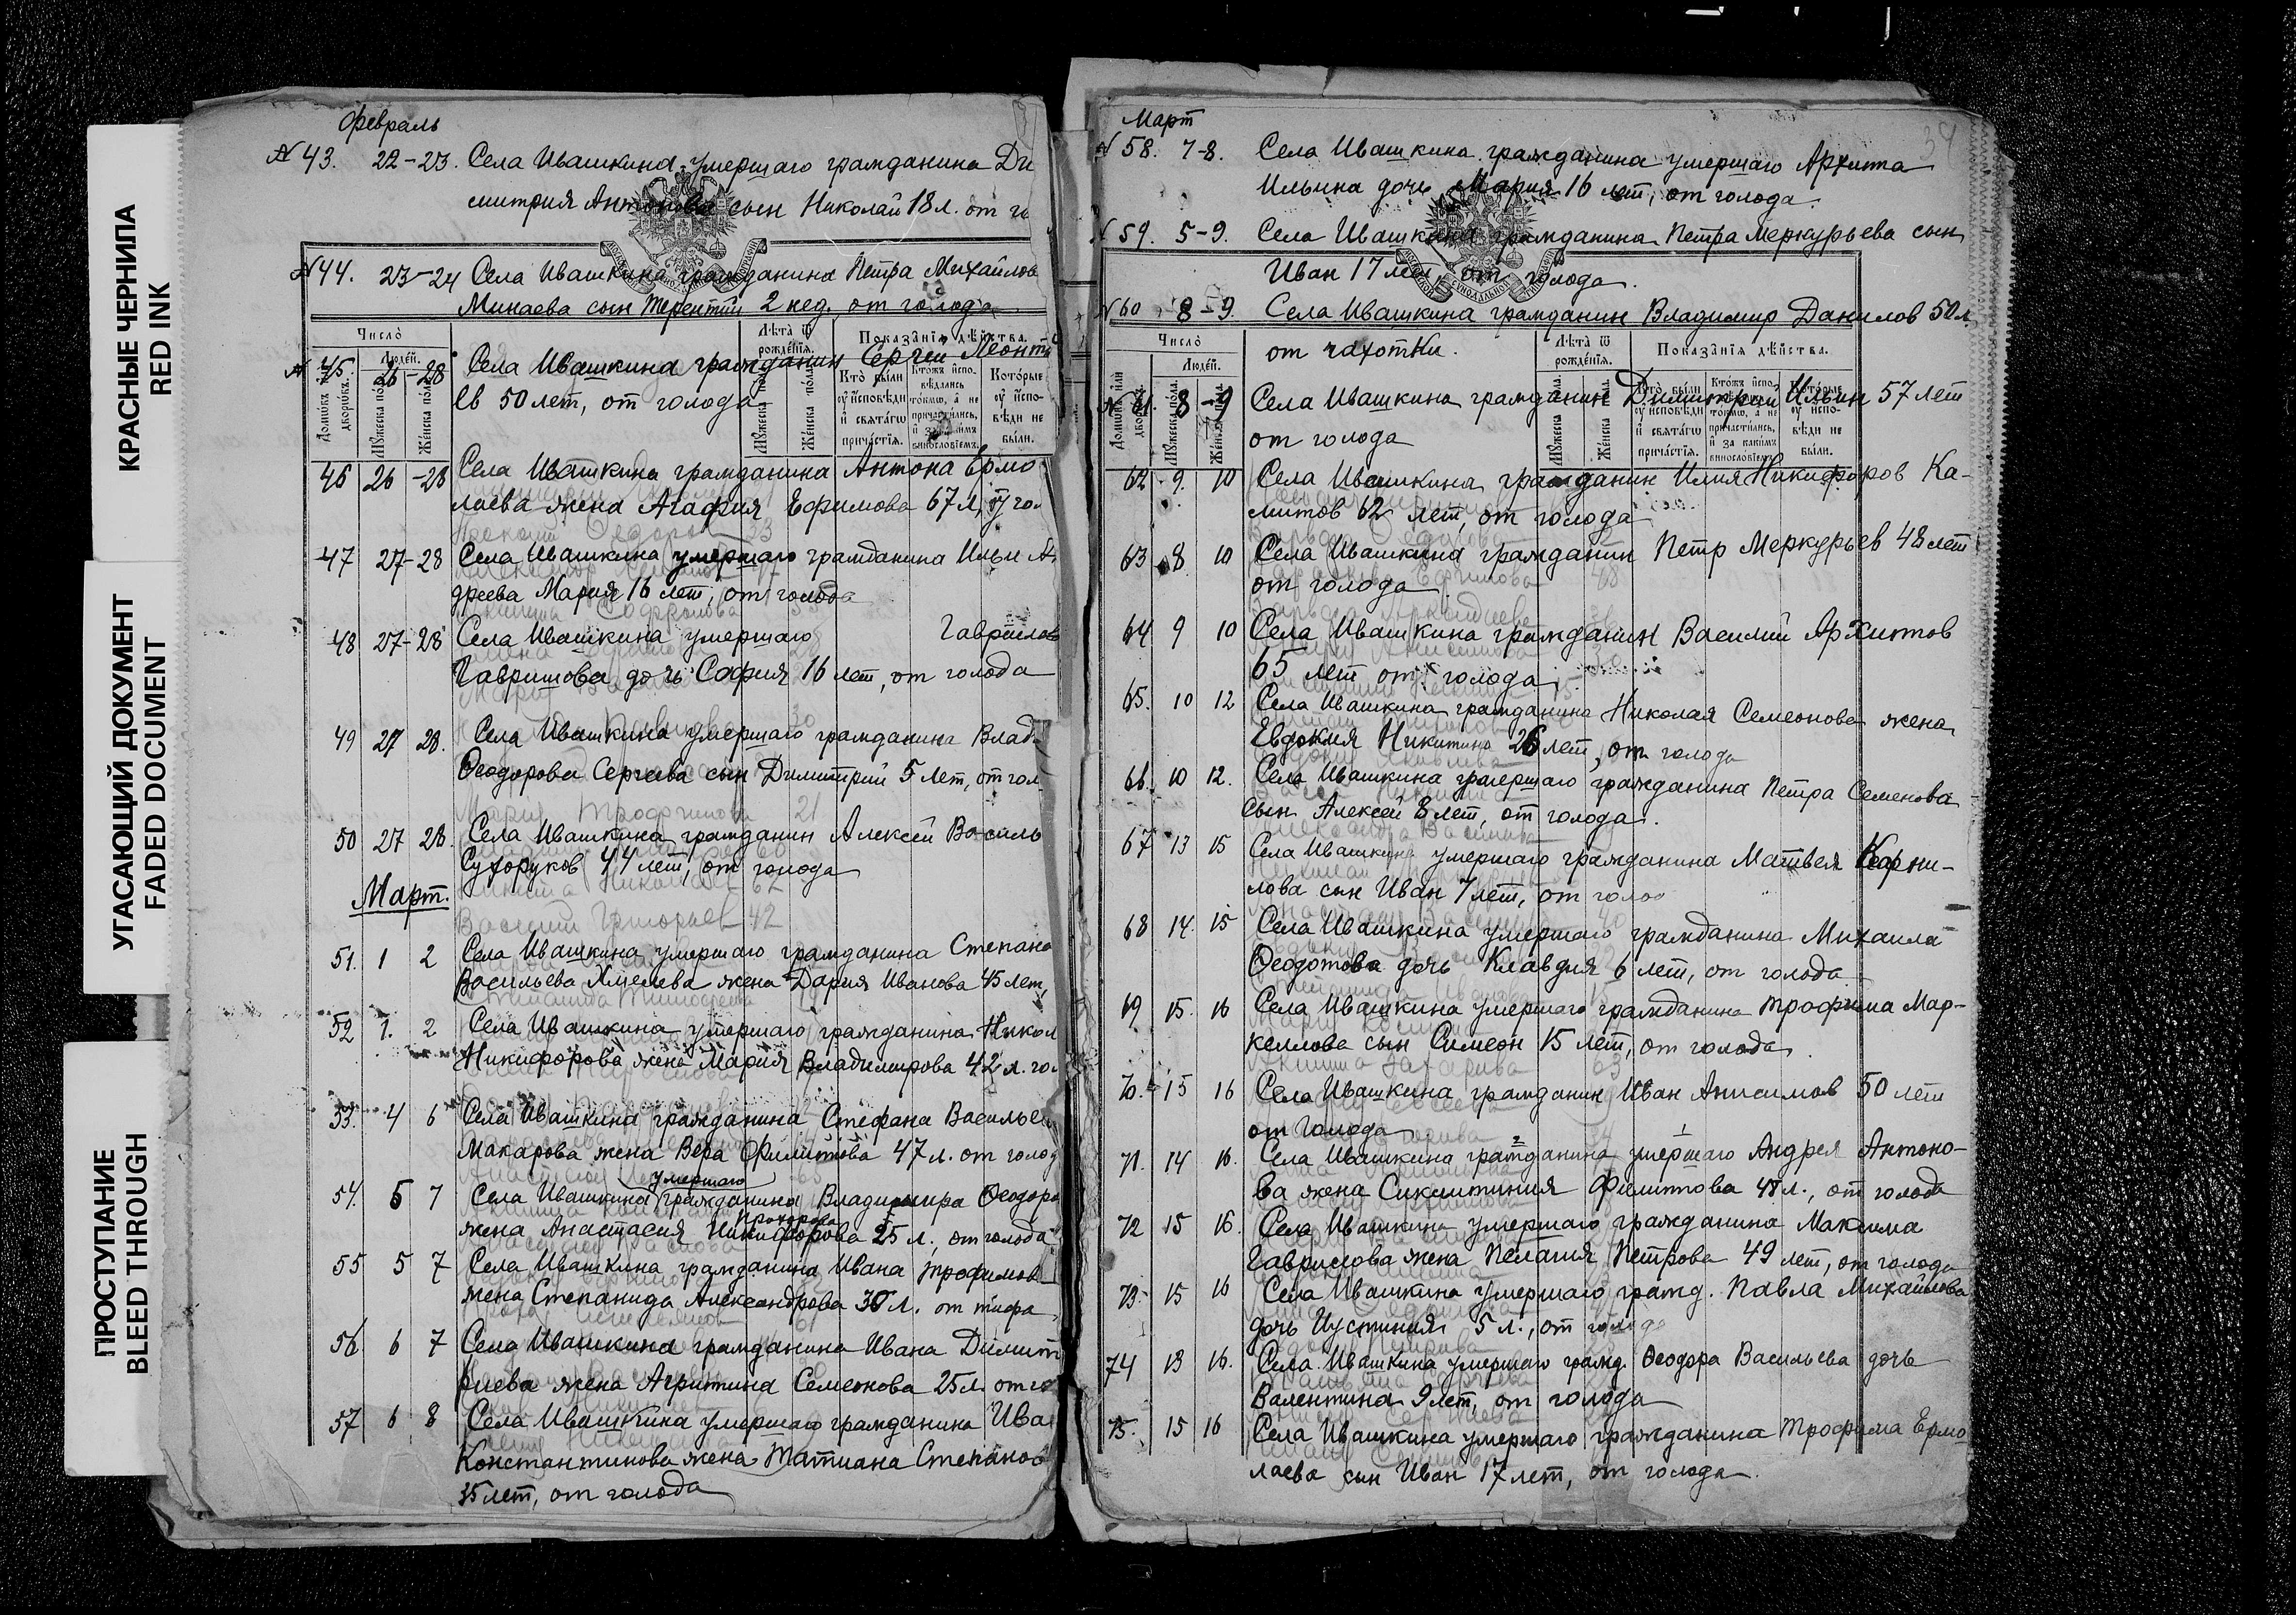 КРАСНЫЕ ЧЕРНИЛА
RED INK
УГАСАЮЩИЙ ДОКУМЕНТ
FADED DOCUMENT
ПРОСТУПАНИЕ
BLEED THROUGH
Февраль
№43. 22-23. Села Ивашкина умершаго гражданина Ди
митрия Антонова сын Николай 18 л. от го
№44. 23-24 Села Ивашкина гражданина Петра Михайлов
Минаева сын Терентий 2 нед. от голода
Число̀
Людей.
Лѣта ѿ рожде́нїя.
Показа̑нїѧ дѣ́йства.
№45. 26-28 Села Ивашкина гражданин Сергей Леонть
ев 50 лет, от голода
46 26-28 Села Ивашкина гражданина Антона Ермо
лаева жена Агафия Ефимова 67 л, от гол
47 27-28 Села Ивашкина умершаго гражданина Ильи Ан
дреева Мария 16 лет, от голода
48 27-28 Села Ивашкина умершаго Гаврилов
Гаврилова дочь София 16 лет, от голода
49 27 28. Села Ивашкина умершаго гражданина Влад
Феодорова Сергеева сын Димитрий 5 лет, от гол
50 27 28. Села Ивашкина гражданин Алексей Василь
Сухоруков 44 лет, от голода
Март.
51. 1 2 Села Ивашкина умершаго гражданина Степана
Васильева Хмелева жена Дария Иванова 45 лет,
52 1. 2 Села Ивашкина умершаго гражданина Никол
Никифорова жена Мария Владимирова 42 л. гол
53. 4 6 Села Ивашкина гражданина Стефана Василье
Макарова жена Вера Филиппова 47 л. от голод
умершаго
54. 5 7 Села Ивашкина гражданина Владимира Феодоро
Прохорова
жена Анастасия Никифорова 25 л., от голода
55 5 7 Села Ивашкина гражданина Ивана Трофимов
жена Степанида Александрова 30 л. от тифа
56 6 7 Села Ивашкина гражданина Ивана Димит
риева жена Агрипина Семеонова 25 л. от го
57 6 8 Села Ивашкина умершаго гражданина Ива
Константинова жена Татиана Степанов
35 лет, от голода
Март
№58. 7-8. Села Ивашкина гражданина умершаго Архипа
Ильина дочь Мария 16 лет, от голода.
№59. 5-9. Села Ивашкина гражданина Петра Меркурьева сын
Иван 17 лет, от голода.
№60 8-9. Села Ивашкина гражданин Владимир Данилов 50 л.
от чахотки.
Число̀
Людей.
Лѣта ѿ рожде́нїя.
Показа̑нїѧ дѣ́йства.
№61. 8-9 Села Ивашкина гражданин Димитрий Ильин 57 лет
от голода
62 9. 10 Села Ивашкина гражданин Илия Никифоров Ка-
митов 62 лет, от голода
63 8 10 Села Ивашкина гражданин Петр Меркурьев 48 лет
от голода
64 9 10 Села Ивашкина гражданин Василий Архипов
65 лет от голода
65. 10 12 Села Ивашкина гражданина Николая Семеонова жена
Евдокия Никитина 26 лет, от голода
66. 10 12. Села Ивашкина гражданина Петра Семенова
сын Алексей 8 лет, от голода.
67 13 15 Села Ивашкина умершаго гражданина Матвея Карни-
лова сын Иван 7 лет, от голо
68 14. 15 Села Ивашкина умершаго гражданина Михаила
Феодотова дочь Клавдия 6 лет, от голода
69 15. 16 Села Ивашкина умершаго гражданина Трофима Мар-
келлова сын Симеон 15 лет, от голода.
70. 15 16 Села Ивашкина гражданин Иван Анисимов 50 лет
от голода
71. 14 16. Села Ивашкина гражданина умершаго Андрея Антоно-
ва жена Филиппова 48 л., от голода
72 15 16. Села Ивашкина умершаго гражданина Максима
Гаврилова жена Пелагия Петрова 49 лет, от голода
73. 15 16 Села Ивашкина умершаго гражд. Павла Михайлова
дочь Иустиния 5 л., от голода
74 13 16. Села Ивашкина умершаго гражд. Феодора Васильева дочь
Валентина 9 лет, от голода
75. 15 16 Села Ивашкина умершаго гражданина Трофима Ермо
лаева сын Иван 17 лет, от голода.